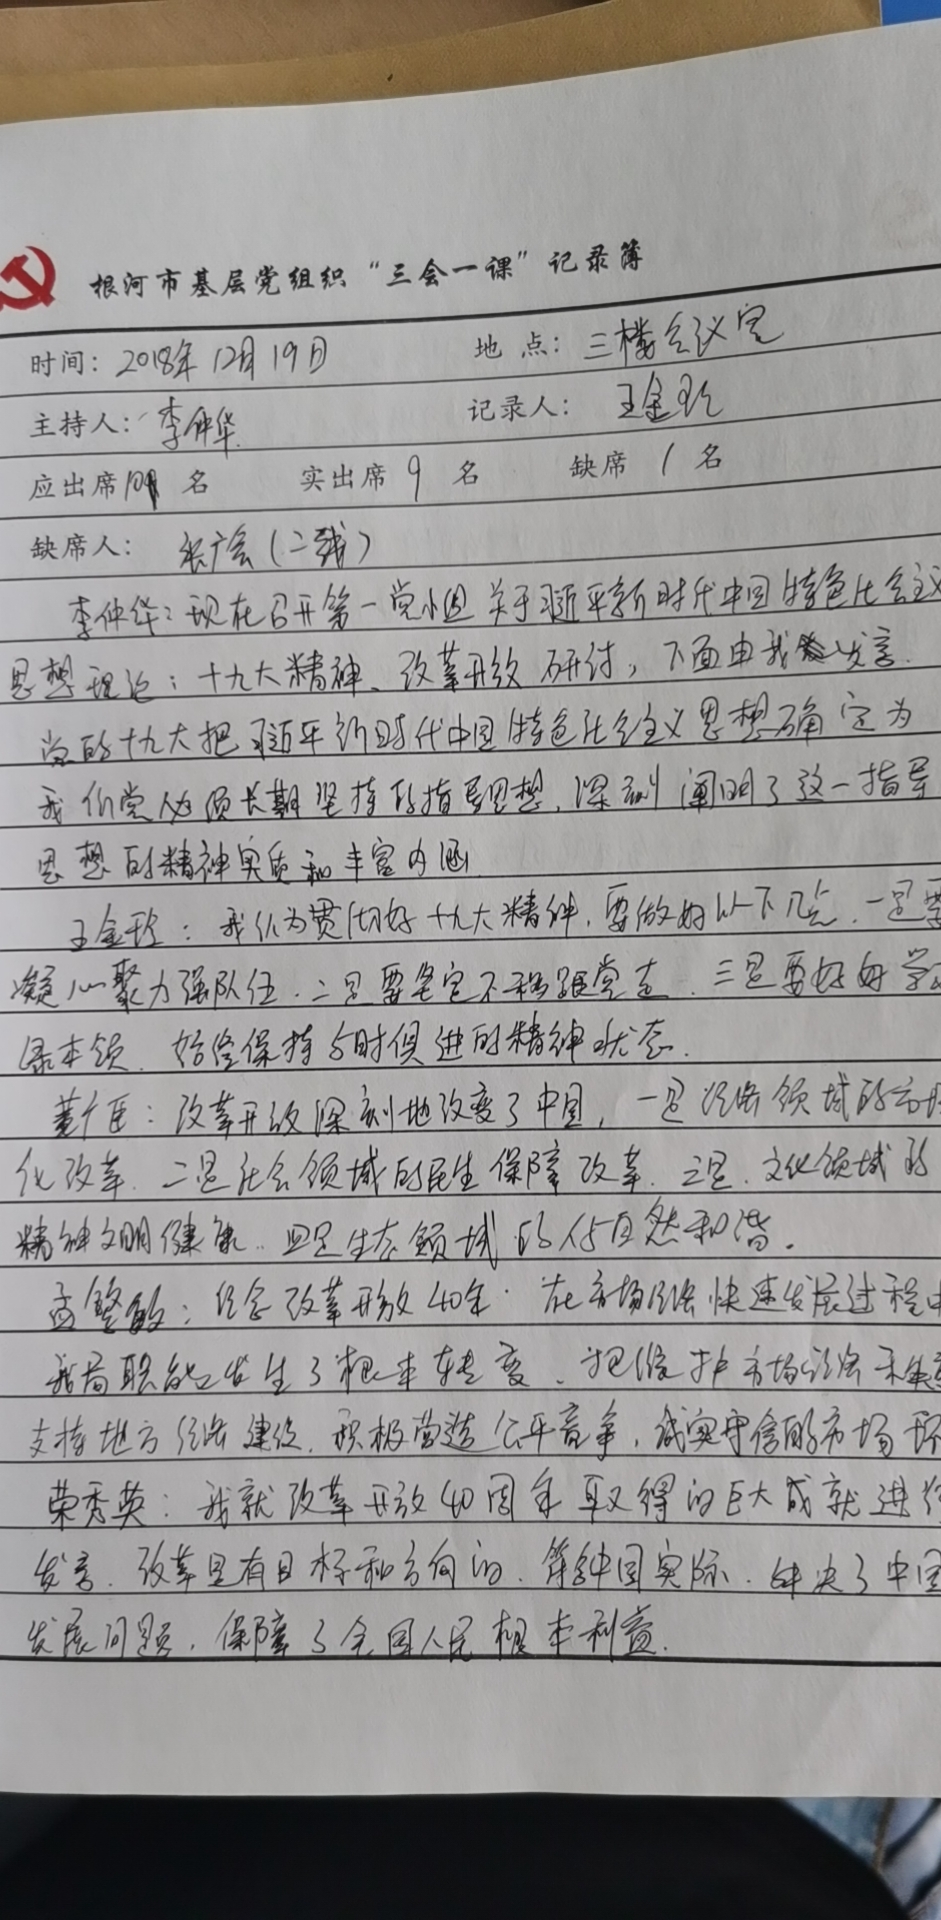 根河市基层党组织“三会一课”记录簿
时间：2018年12月19日 地点：三楼会议室
主持人：李仲华 记录人：王金玲
应出席10名 实出席9名 缺席1名
缺席人：张广会（二线）
李仲华：现在召开第一党小组关于习近平新时代中国特色社会主义
思想理论；十九大精神、改革开放研讨，下面由我发言.
党的十九大把习近平新时代中国特色社会主义思想确定为
我们党必须长期坚持的指导思想，深刻阐明了这一指导
思想的精神实质和丰富内涵
王金玲：我认为贯彻好十九大精神，要做好以下几点，一是要
凝心聚力强队伍.二是要坚定不移跟党走，三是要好好学
本领，始终保持与时俱进的精神状态.
董广臣：改革开放深刻地改变了中国，一是经济领域的市
化改革，二是社会领域的民生保障改革，三是，文化领域的
精神文明健康..四是生态领域的人与自然和谐.
孟 敏：纪念改革开放40年.在市场经济快速发展过程中
我局职能发生了根本转变，把维护市场经济
支持地方经济建设，积极营造公平竞争，诚实守信的市场环
荣秀英：我就改革开放40周年取得的巨大成就进行
发言，改革是有目标和方向的，符合中国实际，解决了中国
发展问题，保障了全国人民根本利益.